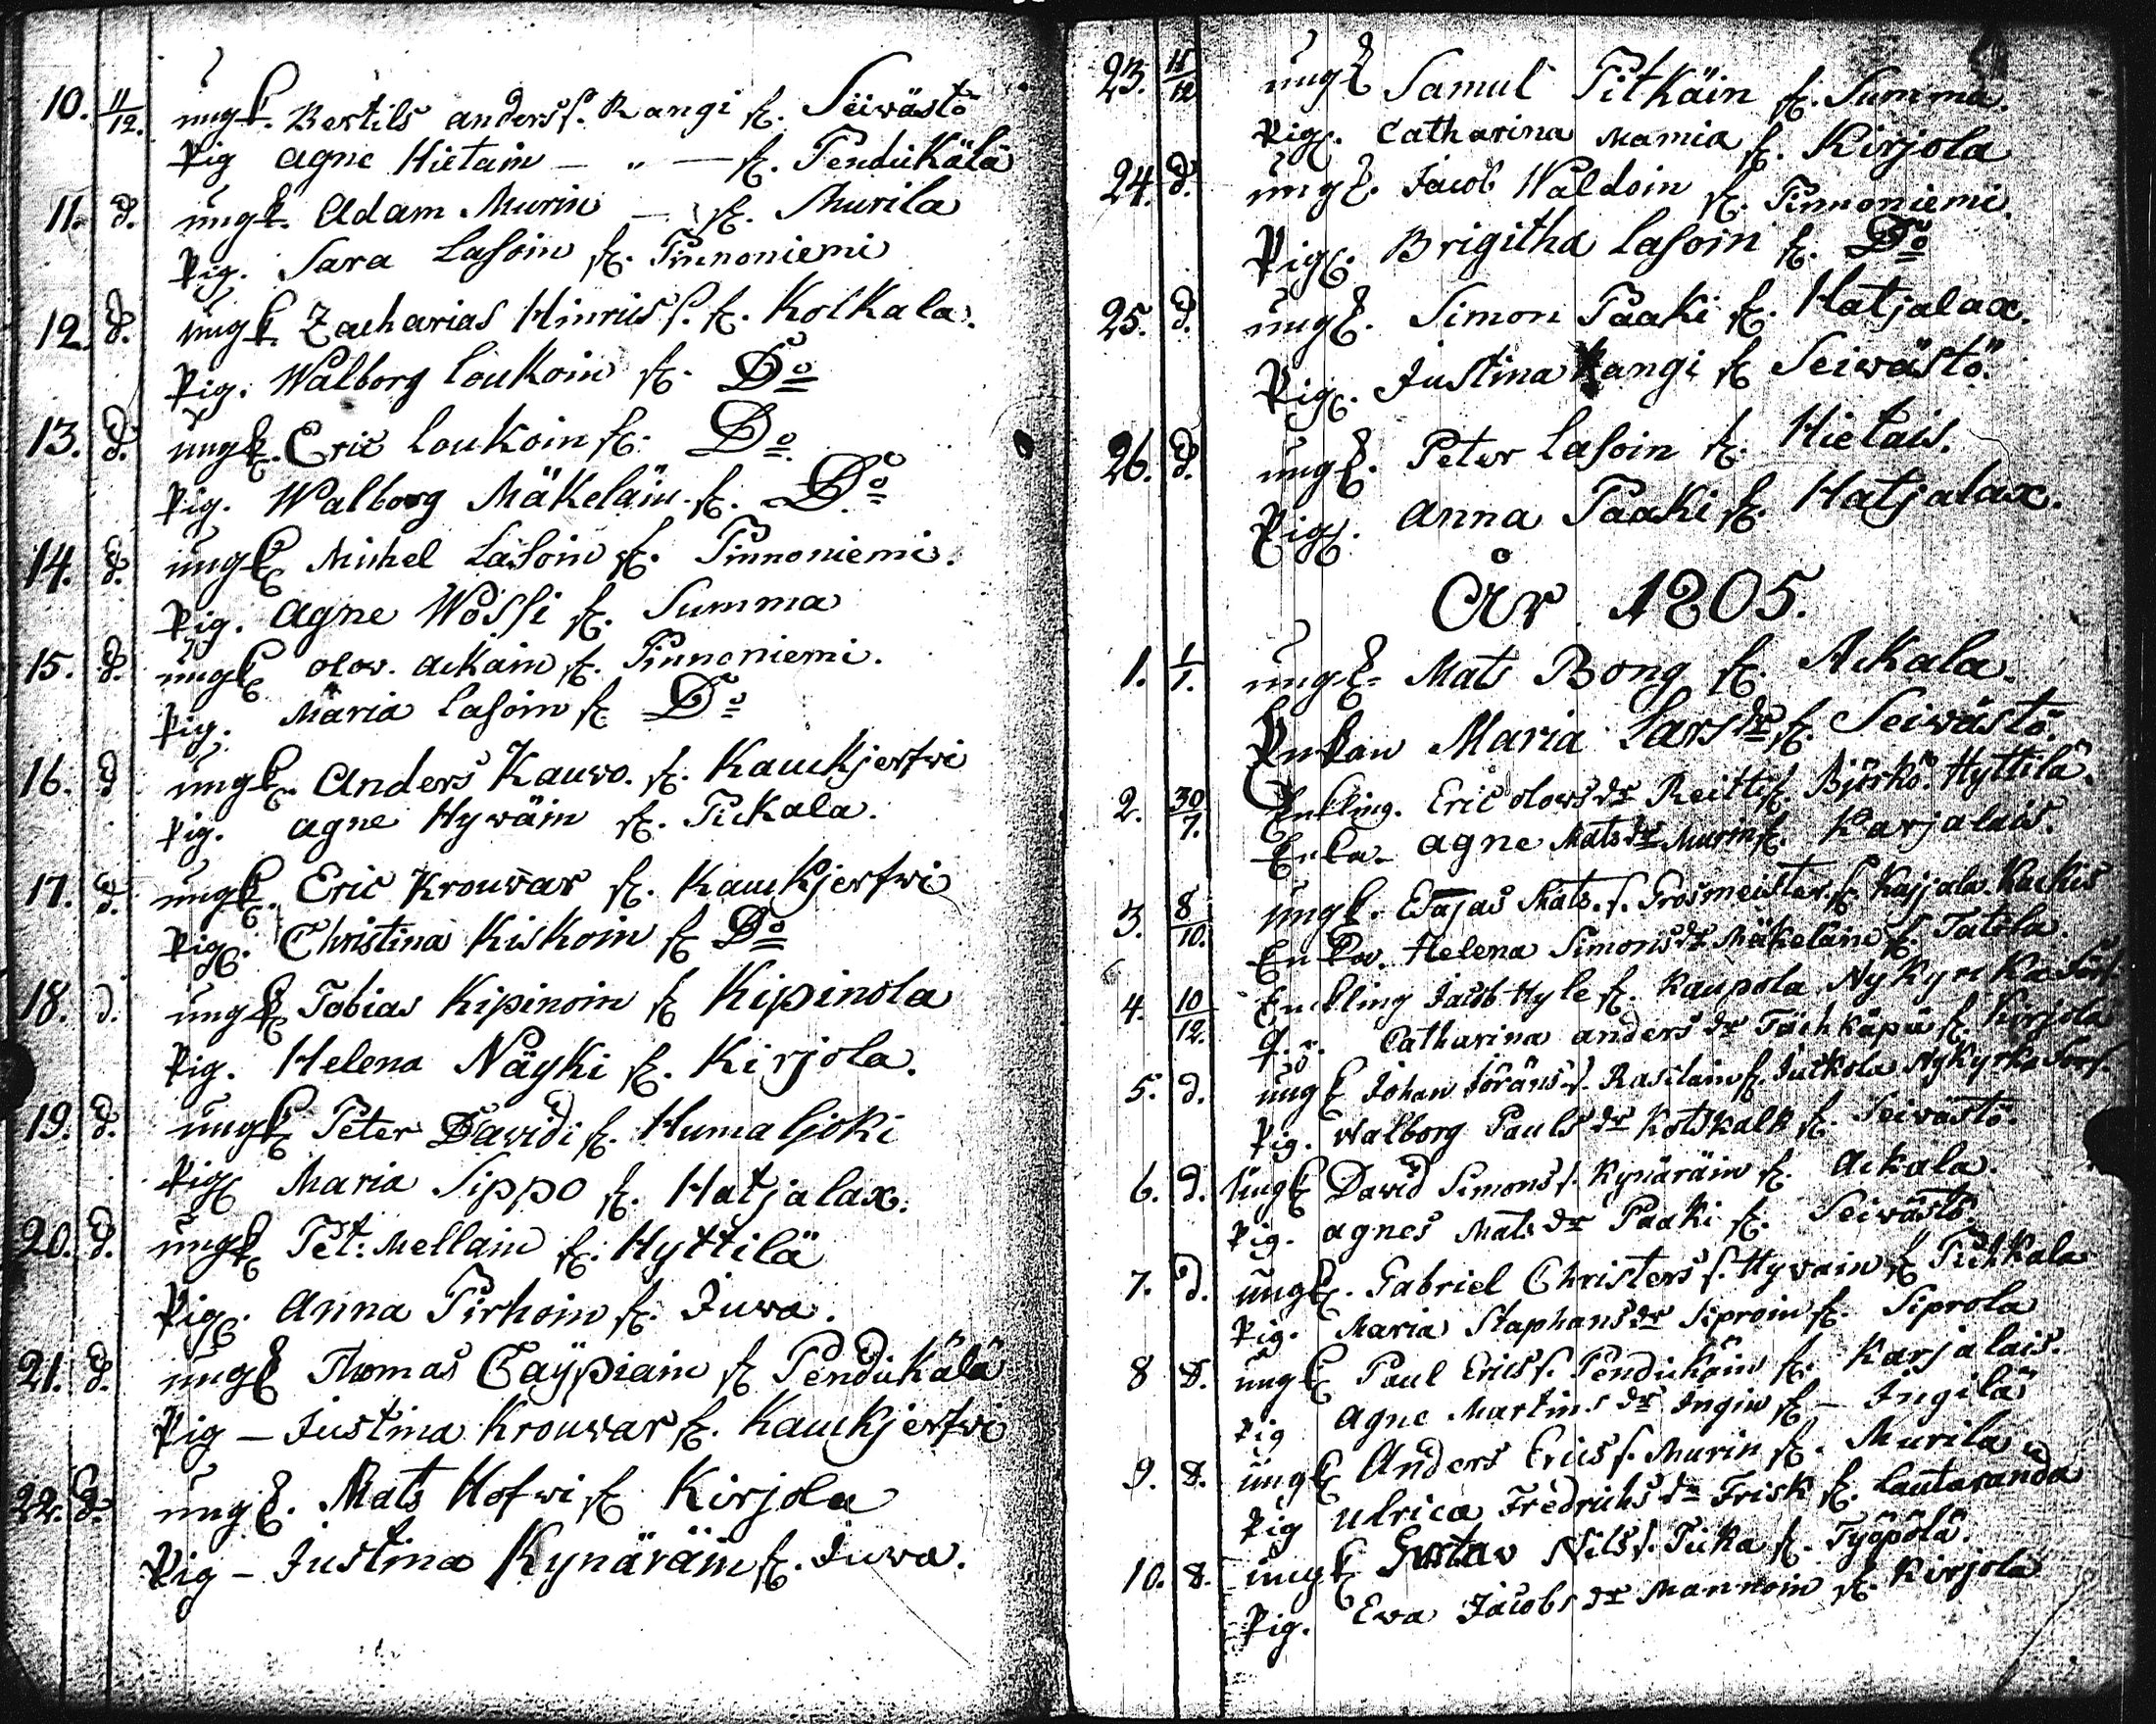 10. 11/12. ungk. Bertils anderss. Rangi fr. Seiwästö
Pig agne Hietain — " — fr. Pendikälä
11. d. ungk. Adam Murin — fr. Murila
Pig. Sara Lasoin fr. Pinnoniemi
12 d. ungk. Zacharias Hinricss. fr. Kolkala.
Pig. Walborg Loukoin fr. Do
13. d. ungk. Eric Loukoin fr. Do
Pig. Walborg Mäkeläin fr. Do
14. d. ungk Michel Lasoin fr. Pinnoniemi.
Pig. Agne Wossi fr. Summa
15. d. ungk olov. Ackain fr. Pinnoniemi.
Pig. Maria Lasoin fr Do
16. d ungk. Anders Kauvo. fr. Kauckjerfwi
Pig. agne Hywäin fr. Pickala.
17. d. ungk. Eric Krouvar fr. Kauckjerfwi
Pig. Christina Kiskoin fr Do
18. d. ungk Tobias Kipinoin fr Kipinola
Pig. Helena Näyki fr. Kirjola.
19. d. ungk Peter Davidi fr. Humaljoki
Pig Maria Sippo fr. Hatjalax.
20. d. ungk Pet: Mellain fr. Hyttilä
Pig. Anna Pirhoin fr. Juva.
21. d. ungk Thomas Caÿpiain fr Pendikälä
Pig — Justina Krouvar fr. Kauckjerfwi
22. d. ungk. Mats Hofwi fr Kirjola
Pig — Justina Kynäräin fr. Juwa.
23. 11/12 ungk Samul Pitkäin fr. Summa.
Pig. Catharina Mamia fr. Kirjola
24. d. ungk. Jacob Waldoin fr. Pinnoniemi.
Pig. Brigitha Lasoin fr. Do
25. d. ungk. Simon Paaki fr. Hatjalax.
Pig. Justina Rangi fr Seiwästö.
26. d. ungk. Peter Lasoin fr. Hietais.
Pig. Anna Paaki fr. Hatjalax.
År 1805.
1. 1/1. ungk. Mats Bong fr. Ackala.
Enkan Maria Larsdr fr. Seiwästö.
2. 30/7. Enkling. Eric olowsdr Reitti fr. Björkö. Hyttilä.
Enka. Agne Matsdr Murin fr. Karjalais.
3. 8/10. ungk. Esajas Mats.s. Grosmeister fr Kajjala. Kackis
Enka. Helena Simonsdr Mäkeläin fr. Tatila.
4. 10/12. Enckling Jacob Hyle fr. Kaupola Nykyrka
Catharina andersdr fr. Kirjola
5. d. ungk Johan Joranss. Rasilain fr. Juckola Nykyrka Sock.
Pig. Walborg Paulsdr Kotskalk fr. Seiwästö.
6. d. ungk David Simonss. Kynäräin fr. Ackala.
Pig. agnes Matsdr Paaki fr. Seiwästö
7. d. ungk. Gabriel Christerss. Hyvain fr Pickala
Pig. Maria Staphansdr Siproin fr. Siprola
8 d. ungk Paul Ericss. Pendikäin fr. Karjalais.
Pig Agne Martinsdr Ingin fr — Ingilä
9. d. ungk Anders Ericss. Murin fr. Murila
Pig Ulrica Fredrichsdr Frisk fr. Lautaranda
10. d. ungk Gustav Nilss. Ticka fr. Työpölä.
Pig. Ewa Jacobsdr Mannoin fr. Kirjola